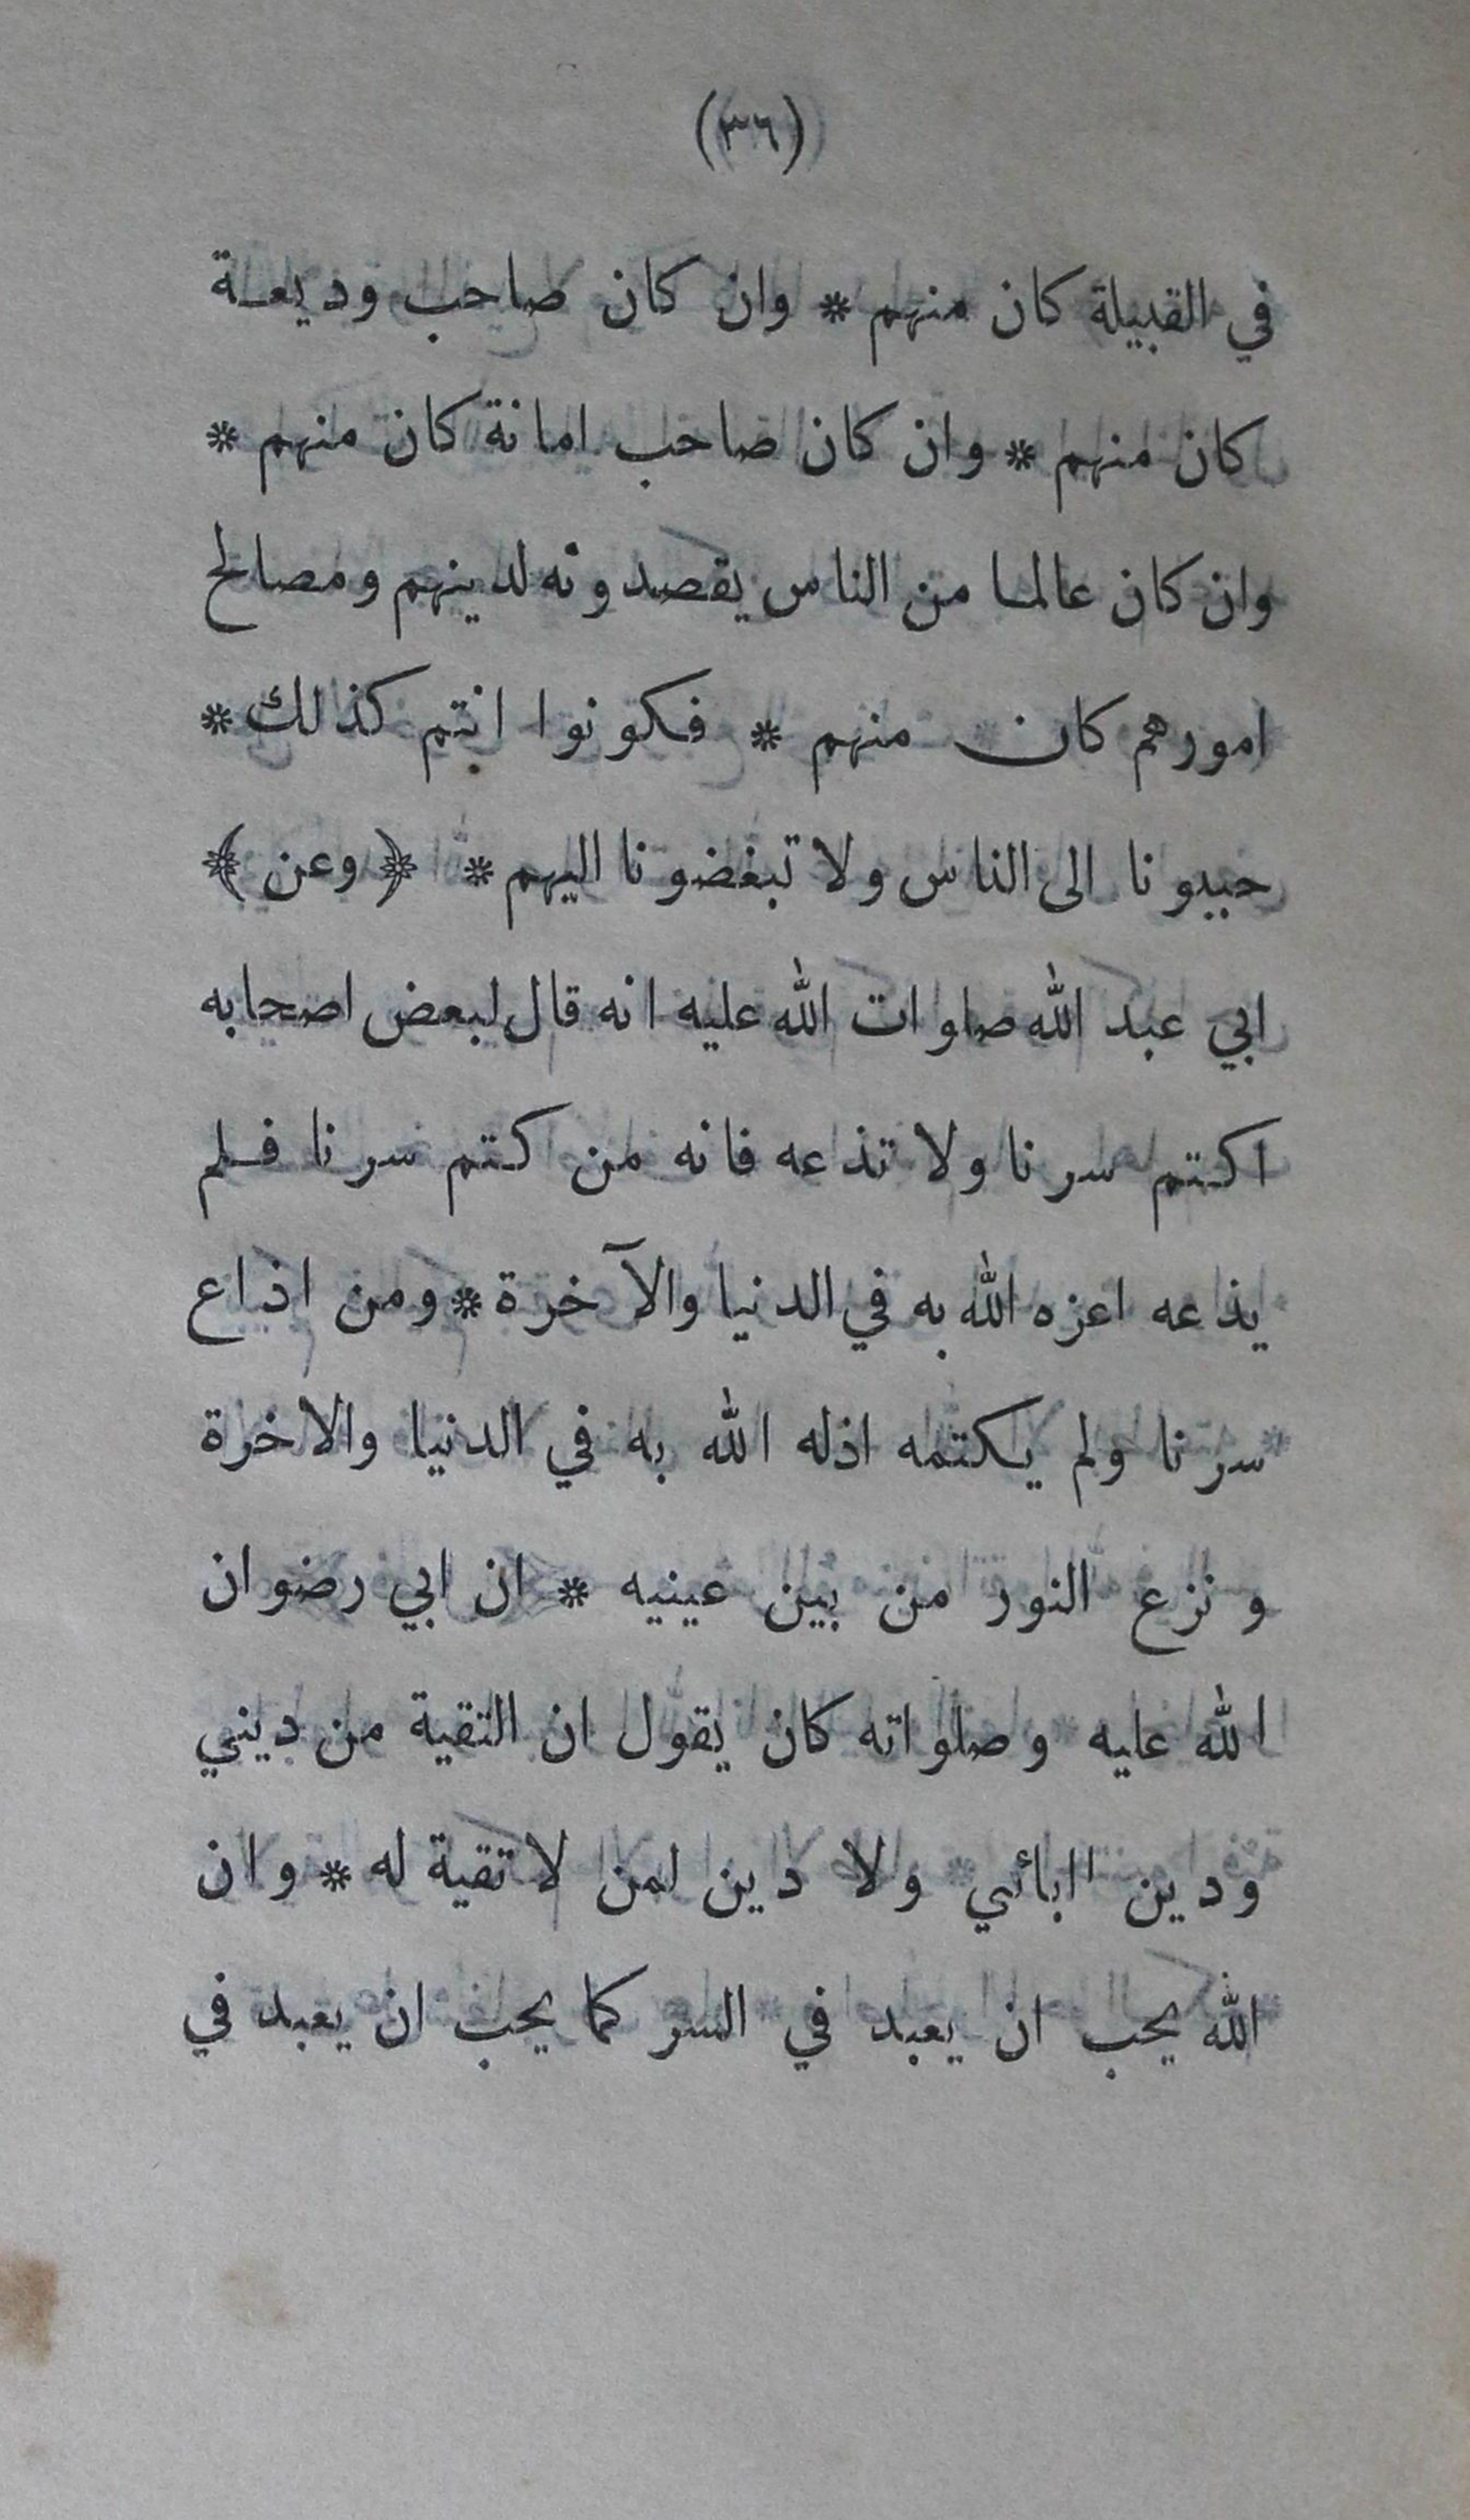 (٣٦)
في القبيلة كان منهم * وان كان صاحب وديعة
كان منهم * وان كان صاحب امانة كان منهم *
وان كان عالما من الناس يقصدونه لدينهم ومصالح
امورهم كان منهم * فكونوا انتم كذلك *
حببونا الى الناس ولا تبغضونا اليهم * ﴿ وعن ﴾
ابي عبد الله صلوات الله عليه انه قال لبعض اصحابه
اكتم سرنا ولا تذعه فانه من كتم سرنا فلم
يذعه اعزه الله به في الدنيا والآخرة * ومن اذاع
سرنا ولم يكتمه اذله الله به في الدنيا والاخرة
ونزع النور من بين عينيه * ان ابي رضوان
الله عليه وصلواته كان يقول ان التقية من ديني
ودين اابائي ولا دين لمن لا تقية له * وان
الله يحب ان يعبد في السر كما يحب ان يعبد في